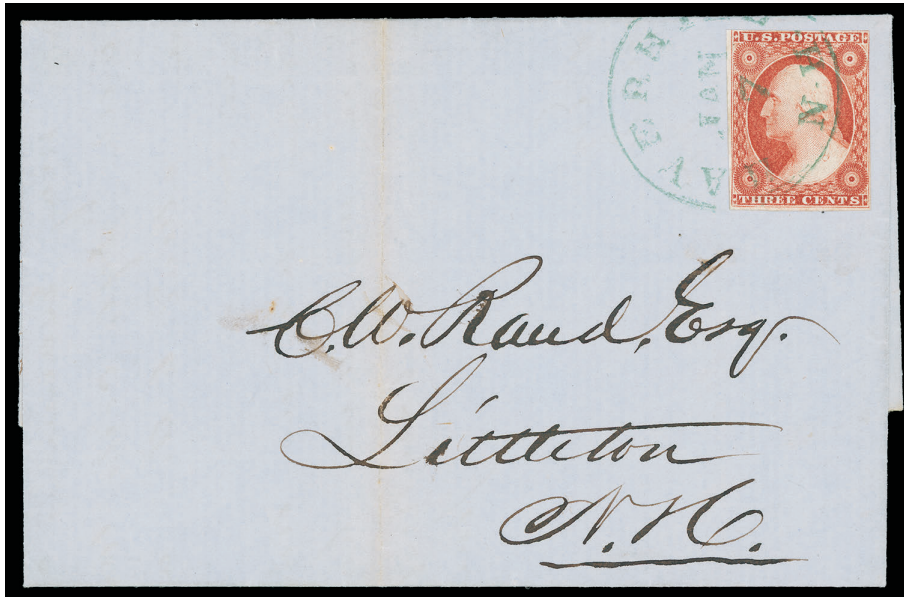 U.S. POSTAGE
THREE CENTS
JAN
C. W. Rand, Esq.
Littleton
N. H.